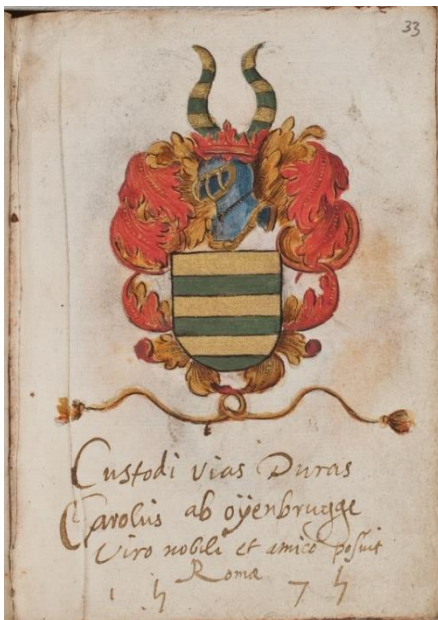 33
Custodi vias Duras
Carolus ab oÿenbrugge
Viro nobili et amico posuit
Romæ
1 5 7 5